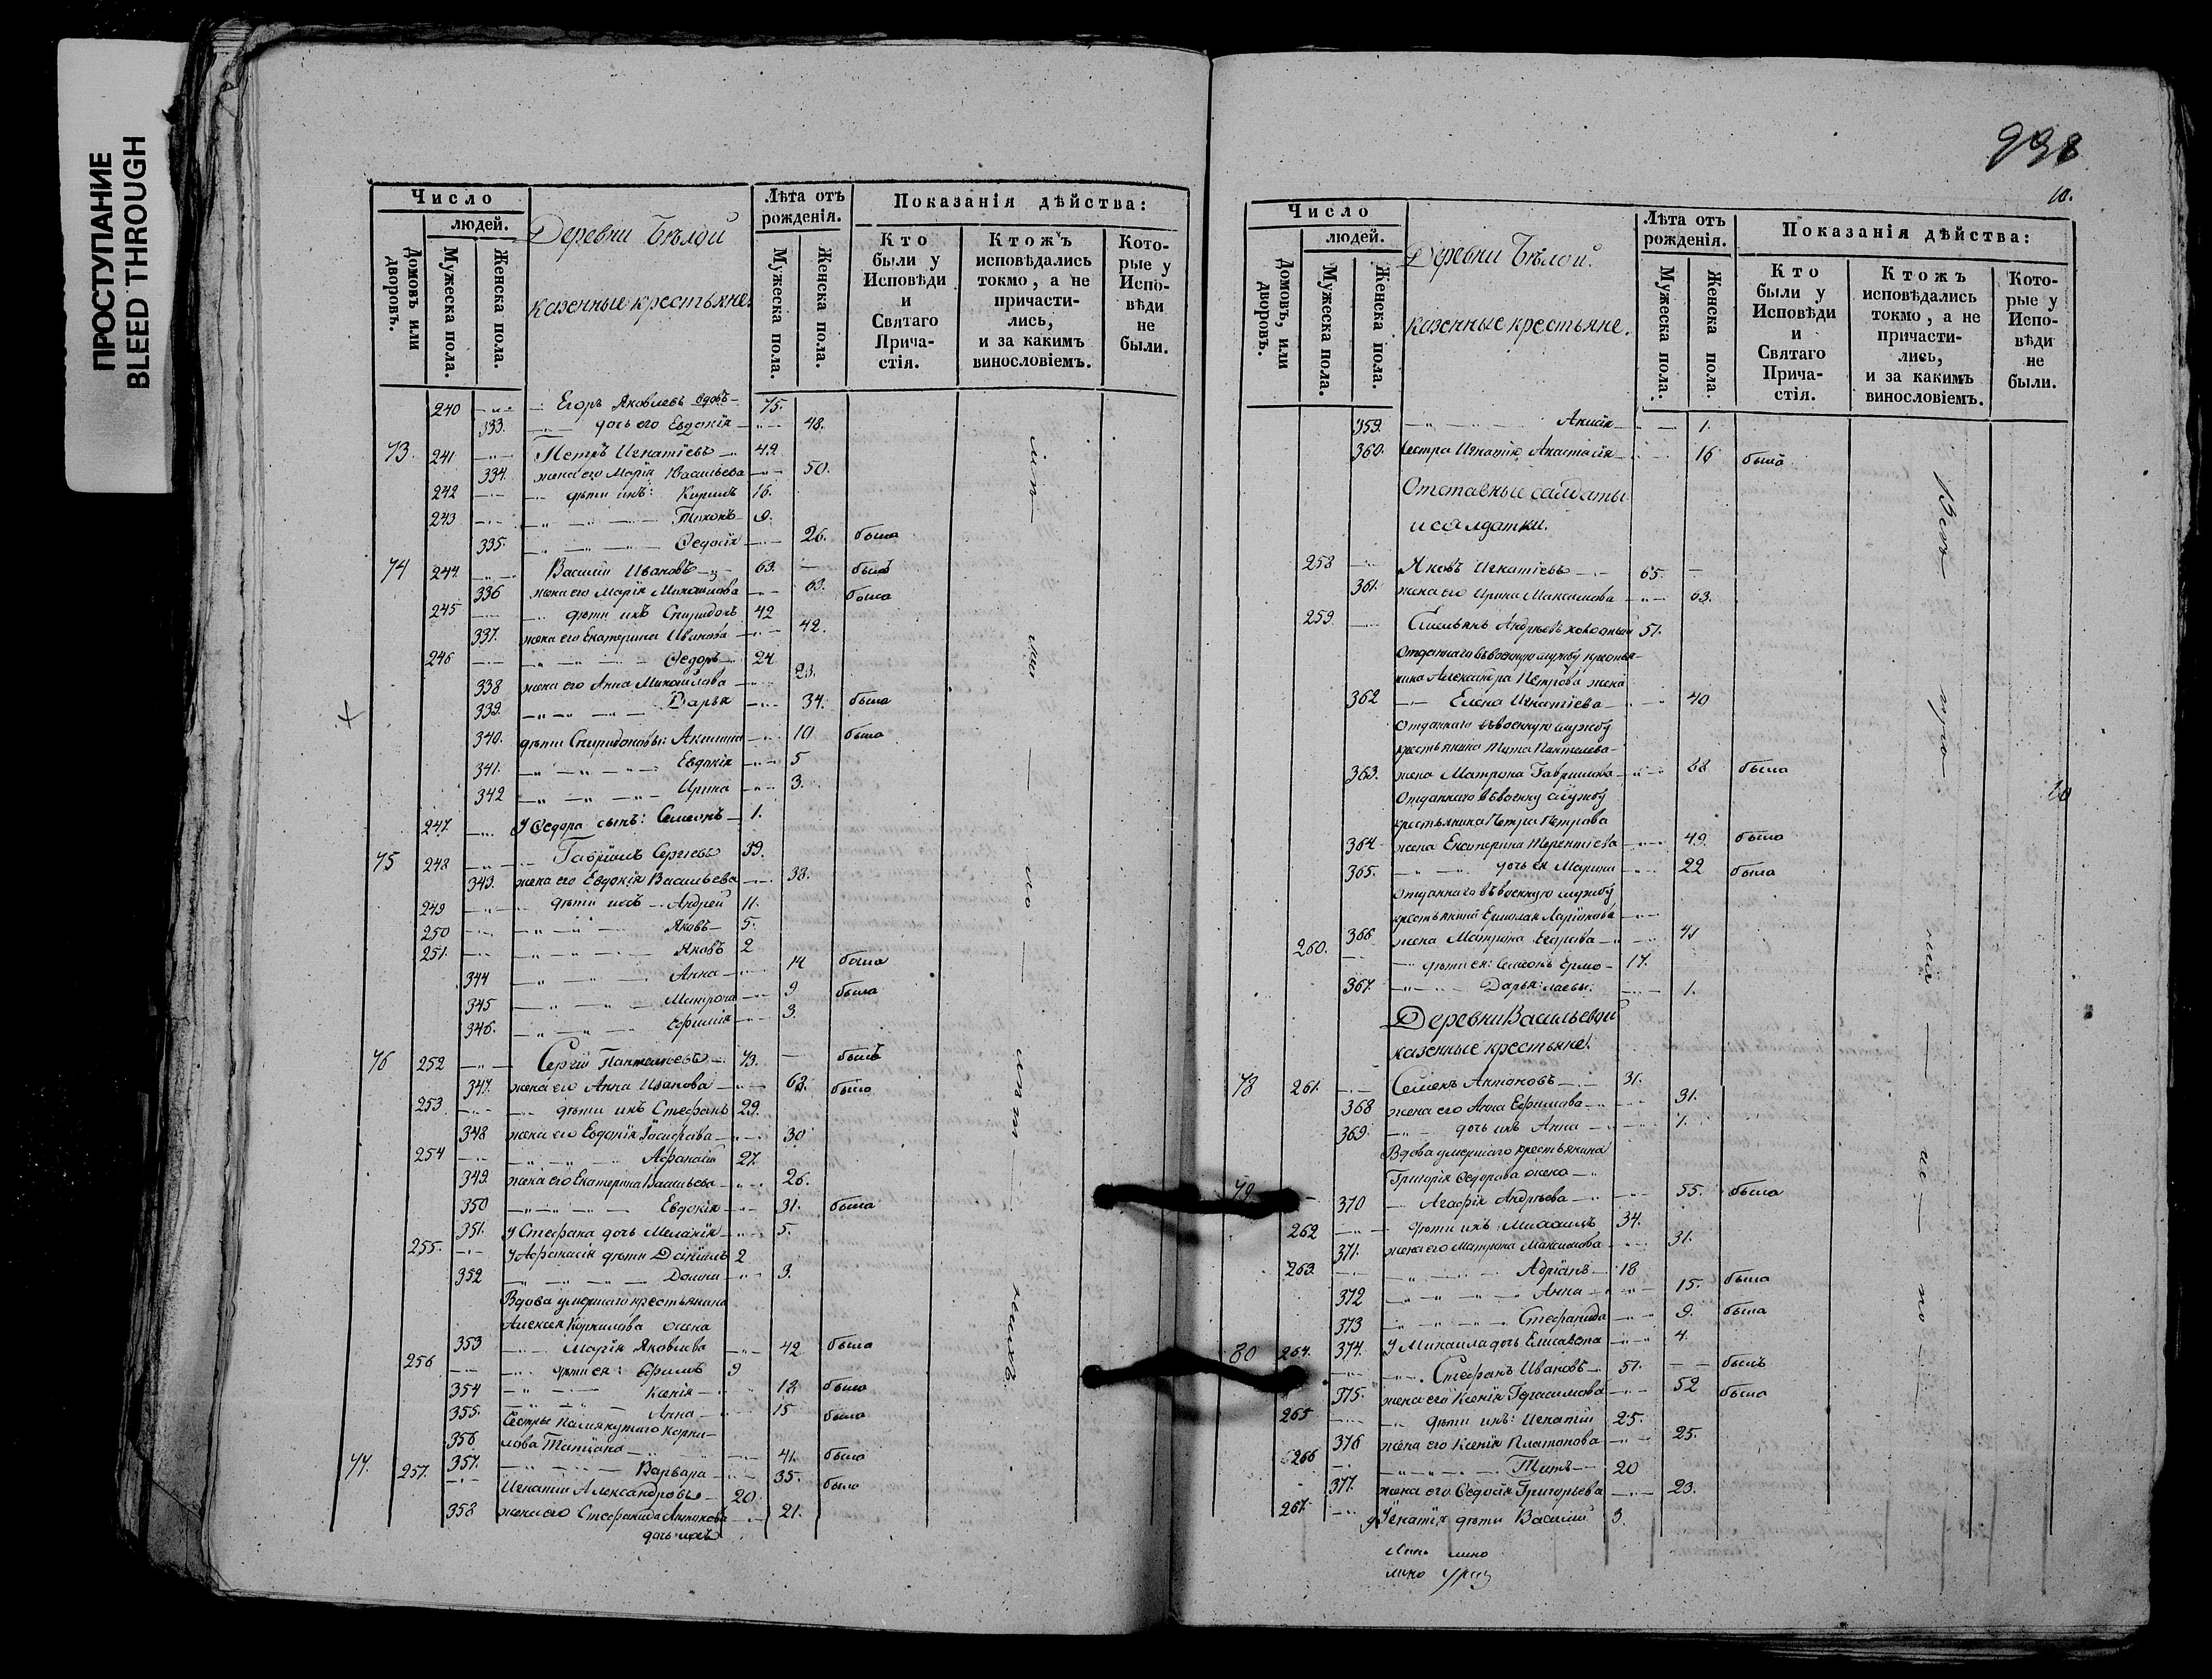 ПРОСТУПАНИЕ
BLEED THROUGH
Число
людей.
Домовъ или дворовъ.
Мужеска пола.
Женска пола.
Деревни Бѣлой
казенные крестьяне.
Лѣта отъ рожденія.
Мужеска пола.
Женска пола.
Показанія дѣйства:
Кто были у Исповѣди и Святаго Прича-стія.
Ктожъ исповѣдались токмо, а не причасти-лись, и за какимъ винословіемъ.
Кото-рые у Испо-вѣди не были.
240 Егоръ Яковлевъ вдовъ 75.
333. дочь его Евдокія 48.
73. 241 Петръ Игнатіевъ 49.
334. жена его Марія Васильева 50.
242 дѣти ихъ: Кирилъ 16.
243 Тихонъ 9.
335. Ѳедосія 26. была
74 244. Василій Ивановъ 63. былъ
336 жена его Марія Михайлова 63. была
245 дѣти ихъ Спиридонъ 42
337. жена его Екатерина Иванова 42.
246 Ѳедоръ 24
338 жена его Анна Михайлова 23.
339. Дарья 34. была
340. дѣти Спиридоновы: Акилина 10 была
341. Евдокія 5
342 Ирина 3.
247. У Ѳедора сынъ: Симеонъ 1.
75 248 Гавріилъ Сергѣевъ 39.
343. жена его Евдокія Васильева 38.
249 дѣти ихъ Андрей 11.
250 Яковъ 5.
251. Яковъ 2
344 Анна 14 была
345 Матрона 9 была
346. Ефимія 3.
76 252 Сергій Пантелѣевъ 73. былъ
347. жена его Анна Иванова 68. была
253 дѣти ихъ Стефанъ 29.
348 жена его Евдокія 30
254 Афанасій 27.
349. жена его Екатерина Васильева 26.
350 Евдокія 31. была
351. У Стефана дочь Меланія 5.
255. У Афанасія дѣти Даніилъ 2
352 Домна 3.
Вдова умершаго крестьянина
Алексѣя Корнилова жена
353 Марія Яковлева 42 была
256 дѣти ея: Ефимъ 9
354 Ксенія 18 была
355. Анна 15 была
Сестры Корни-
356 лова Татіана 41. была
357. Варвара 35. была
77. 257. Игнатій Александровъ 20.
358 жена его Стефанида Антонова 21.
дочь ихъ
938
10.
Число
людей.
Домовъ, или дворовъ.
Мужеска пола.
Женска пола.
Деревни Бѣлой.
казенные крестьяне.
Лѣта отъ рожденія.
Мужеска пола.
Женска пола.
Показанія дѣйства:
Кто были у Исповѣди и Святаго Прича-стія.
Ктожъ исповѣдались токмо, а не причасти-лись, и за какимъ винословіемъ.
Кото-рые у Испо-вѣди не были.
359. Анисія 1.
360. сестра Игнатія Анастасія 16 была
Отставные салдаты
и салдатки.
258 Яковъ Игнатіевъ 65.
361. жена его Ирина Максимова 63.
259 Емельянъ Андрѣевъ холостый 57.
Отданнаго въ военную службу крестья-
нина Александра Петрова жена
362 Елена Игнатіева 40
Отданнаго въ военную службу
крестьянина Тита Пантелѣева
363. жена Матрона Гаврилова 68 была
Отданнаго въ военну службу
крестьянина Петра Петрова
364 жена Екатерина Терентіева 49. была
365. дочь ея Марина 22 была
Отданнаго въ военную службу
крестьянина Ермолая
366 жена Матрона Егорова 41
260. дѣти ея: Симеонъ Ермо- 17.
367. Дарья: лаевы. 1.
Деревни Васильевой
казенные крестьяне.
78 261. Семенъ Антоновъ 31.
368 жена его Анна Ефимова 31.
369. дочь ихъ Анна 7.
Вдова умершаго крестьянина
Григорія Ѳедорова жена
79 370 Агафія Андрѣева 55. была
262 дѣти ихъ Михаилъ 34.
371. жена его Матрона Максимова 31.
263. Адріанъ 18
372 Анна 15. была
373 Стефанида 9. была
374. У Михаила дочь Елисавета 4.
80 264. Стефанъ Ивановъ 57. былъ
375. жена его Ксенія Герасимова 52 была
265 дѣти ихъ: Игнатій 25.
376 жена его Ксенія Платонова 25.
266 Титъ 20
377. жена его Ѳедосія Григорьева 23.
267. У Игнатія дѣти Василій 3.